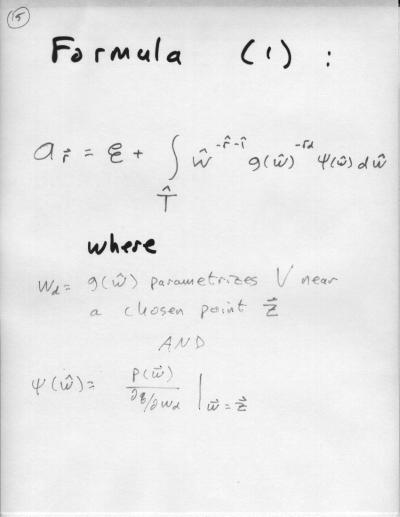 15
Formula (1) :
a_{\vec{r}} = ξ + ∫_{\hat{T}} \hat{w}^{-\hat{r}-\hat{1}} g(\hat{w})^{-r_d} ψ(\hat{w}) d\hat{w}
where
w_d = g(\hat{w}) parametrizes V near
a chosen point \vec{z}
AND
ψ(\hat{w}) = \frac{p(\vec{w})}{∂q/∂w_d} |_{\vec{w} = \vec{z}}